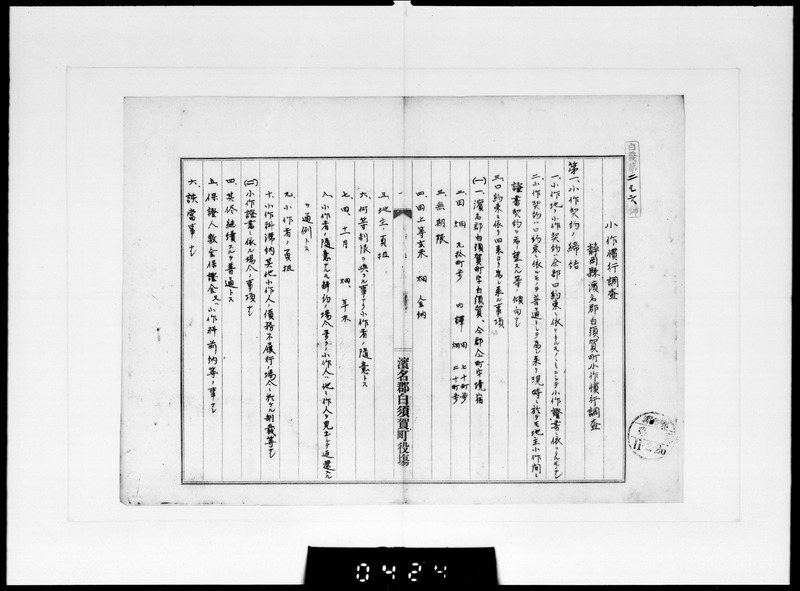 小作慣行調査
静岡縣濱名郡白須賀町小作慣行調査
第一、小作契約ノ締結
一、小作地ノ小作契約ハ全部口約束ニ依リタルモノノミニシテ小作證書ニ依リタルモノナシ
二、小作契約ハ口約束ニ依ルモノヲ普通トシテ為シ來リ現時ニ於テモ地主小作間ニ
證書契約ヲ希望スル等ノ傾向ナシ
三、口約束ニ依リ四來ヨリ為シ來ル事項
(一)一、濱名郡白須賀町字白須賀、仝郡仝町字境宿
二、田畑 九拾町歩 内譯 田 七十町歩 畑 二十町歩
三、無期限
四、田上等玄米 畑 金納
濱名郡白須賀町役場
五、地主ノ負担
六、何等制限ヲ決スル事ナク小作者ノ隨意トス
七、田、十二月 畑、年末
八、小作者ノ隨意ナルモ解約ノ場合多クハ小作人ハ他ニ作人ヲ見出シテ返還スル
ヲ通例トス
九、小作者ノ負担
十、小作料滞納其他小作人ノ債務不履行ノ場合ニ於ケル制裁等ナシ
(二)小作證書ニ依ル場合ノ事項ナシ
四、其侭継續スルヲ普通トス
五、保證人敷金保證金又ハ小作料前納等ノ事ナシ
六、該當事ナシ
0424